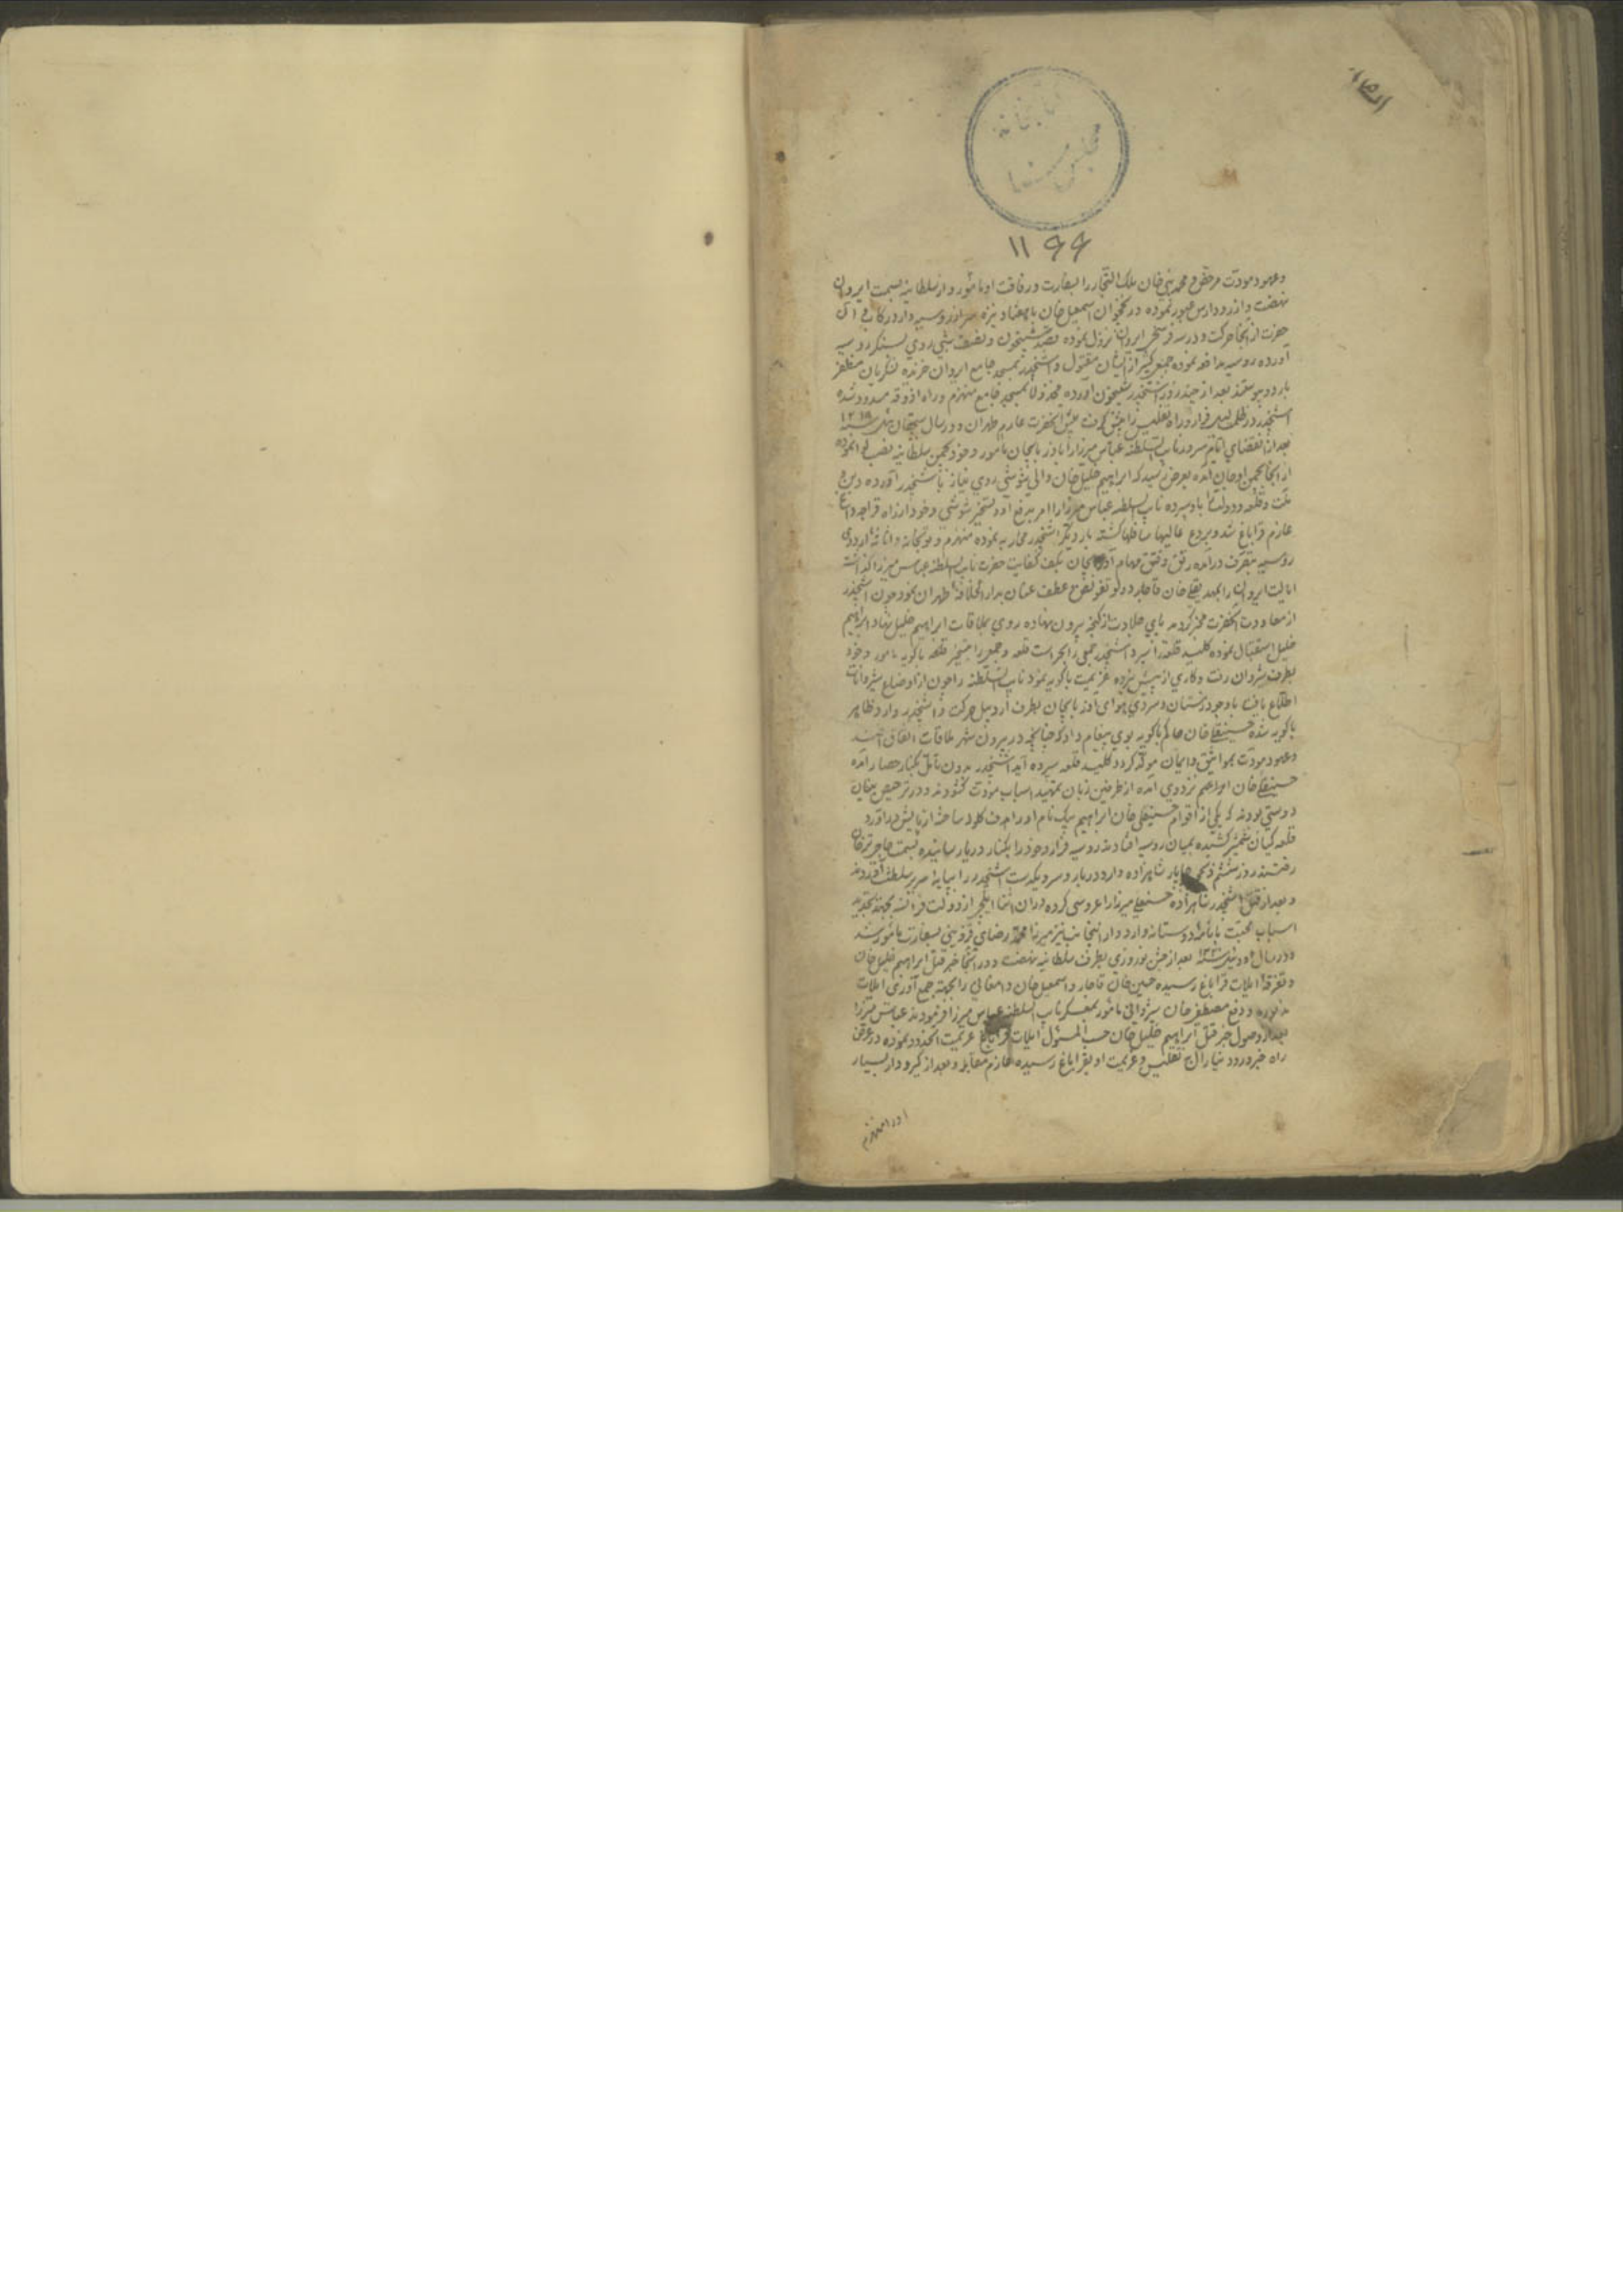 کتابخانه
مجلس سنا
۱۱۶۶
وعهود مودت مرخص و محمد نبی خان ملک التجار را بسفارت و رفاقت او مامور و از سلطانیه بسمت ایروان
نهضت و از رود ارس عبور نموده در نخجوان اسمعیل خان با هفتاد نیزه سر از روسیه وارد رکاب
حضرت از آنجا حرکت و در سه فرسخی ایروان نزول نموده بقصد شبیخون و نصف شبی روی بسنگر روسیه
آورده روسیه مدافعه نموده جمعی کثیر از ایشان مقتول و اشپخدر بمسجد جامع ایروان خزیده لشکریان مظفر
باردو پیوستند بعد از چند روز اشپخدر شبیخون آورده مخذولا بمسجد جامع منهزم و راه آذوقه مسدود شده
اشپخدر در ظلمت لیل فرار و راه تفلیس را پیش گرفت پس آنحضرت عازم طهران و در سال سیچقان ئیل سنه ۱۲۱۹
بعد از انقضای ایام سرور نایب السلطنه عباس میرزا را باذربایجان مامور و خود بچمن سلطانیه نصب لوا نموده
از آنجا بچمن اوجان آمده بعرض رسید که ابراهیم خلیل خان والی شوشی روی نیاز باشپخدر آورده دین و
ملت و قلعه و دولت را باو سپرده نایب السلطنه عباس میرزا را امر بدفع او و تسخیر شوشی و خود از راه قراجه داغ
عازم قراباغ شد و بردع عالیها سافلها گشته بار دیگر اشپخدر محاربه نموده منهزم و توپخانه و اثاثه اردوی
روسیه بتصرف درآمده رتق و فتق مهام آذربایجان بکف کفایت حضرت نایب السلطنه عباس میرزا گذاشته
ایالت ایروان را بمهدیقلی خان قاجار دولو تفویض و عطف عنان بدار الخلافه طهران نمود چون اشپخدر
از معاودت آنحضرت مخبر گردید پای جلادت از گنجه بیرون نهاده روی بملاقات ابراهیم خلیل نهاد ابراهیم
خلیل استقبال نموده کلید قلعه را سپرد اشپخدر جمعی را بحراست قلعه و جمعی را بتسخیر قلعه باکویه مامور و خود
بطرف شیروان رفت و کاری از پیش نبرده عزیمت باکویه نمود نایب السلطنه را چون از اوضاع شیروانات
اطلاع یافت با وجود زمستان و سردی هوای آذربایجان بطرف اردبیل حرکت و اشپخدر وارد ظاهر
باکویه شده حسینقلی خان حاکم باکویه بوی پیغام داد که چنانچه در بیرون شهر ملاقات اتفاق افتد
وعهود مودت بمواثیق و ایمان موکد گردد کلید قلعه سپرده آید اشپخدر بدون تامل بکنار حصار آمده
حسینقلی خان او را هم نزد وی آمده از طرفین زبان بتمهید اسباب مودت گشودند و در ترخیص مبانی
دوستی بودند که یکی از اقوام حسینقلی خان ابراهیم بیک نام او را هدف گلوله ساخته از پایش درآورد
قلعه گیان شمشیر کشیده بمیان روسیه افتادند روسیه فرار و خود را بکنار دریا رسانیده بسمت حاجی ترخان
رفتند روز ششم ذیحجه چاپار شاهزاده وارد دربار و سر و یکدست اشپخدر را بپایه سریر سلطنت افکندند
و بعد از قتل اشپخدر شاهزاده حسنعلی میرزا را عروسی کرده در آن اثنا ایلچی از دولت فرانسه بجهة تجدید
اسباب محبت با نامه دوستانه وارد و از اینجانب نیز میرزا محمد رضای قزوینی بسفارت مامور شد
و در سال اود ئیل سنه ۱۲۲۰ بعد از جشن نوروزی بطرف سلطانیه نهضت و در آنجا خبر قتل ابراهیم خلیل خان
و تفرقه ایلات قراباغ رسیده حسین خان قاجار و اسمعیل خان دامغانی را بجهة جمع آوری ایلات
مذکوره و دفع مصطفی خان شیروانی مامور بمعسکر نایب السلطنه عباس میرزا فرمودند عباس میرزا
بعد از وصول خبر قتل ابراهیم خلیل خان حسب المسئول ایلات قراباغ عزیمت آنحدود نموده در عرض
راه خبر ورود تفلیس و عزیمت او بقراباغ رسیده عازم مقابله و بعد از گیر و دار بسیار
او را منهزم